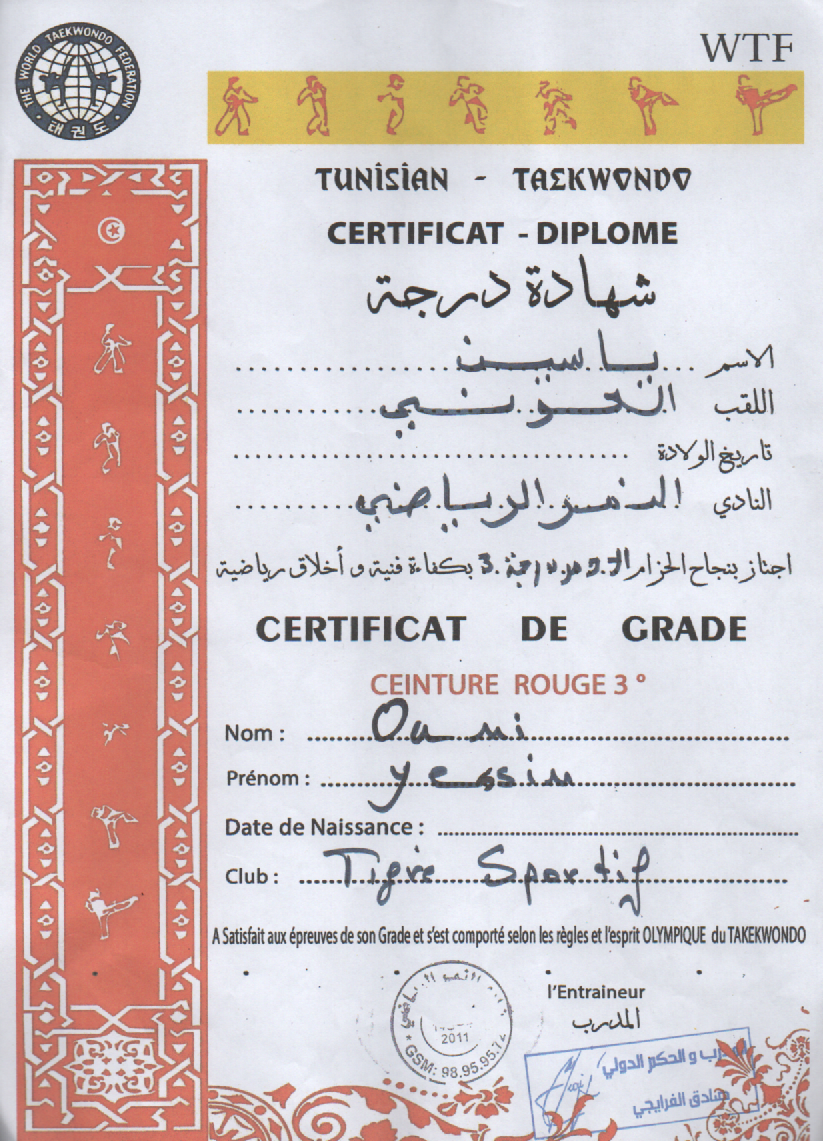 THE WORLD TAEKWONDO FEDERATION
태권도
WTF
TUNISIAN - TAEKWONDO
CERTIFICAT - DIPLOME
شهادة درجة
الاسم ياسين
اللقب
تاريخ الولادة
النادي النمر الرياضي
اجتاز بنجاح الحزام الاحمر درجة 3 بكفاءة فنية و أخلاق رياضية
CERTIFICAT DE GRADE
CEINTURE ROUGE 3 °
Nom : Ouni
Prénom : Yessin
Date de Naissance :
Club : Tigre Sportif
A Satisfait aux épreuves de son Grade et s'est comporté selon les règles et l'esprit OLYMPIQUE du TAKEKWONDO
l'Entraineur
المدرب
2011
GSM: 98.95.95.
و الحكم الدولي
الفرايجي